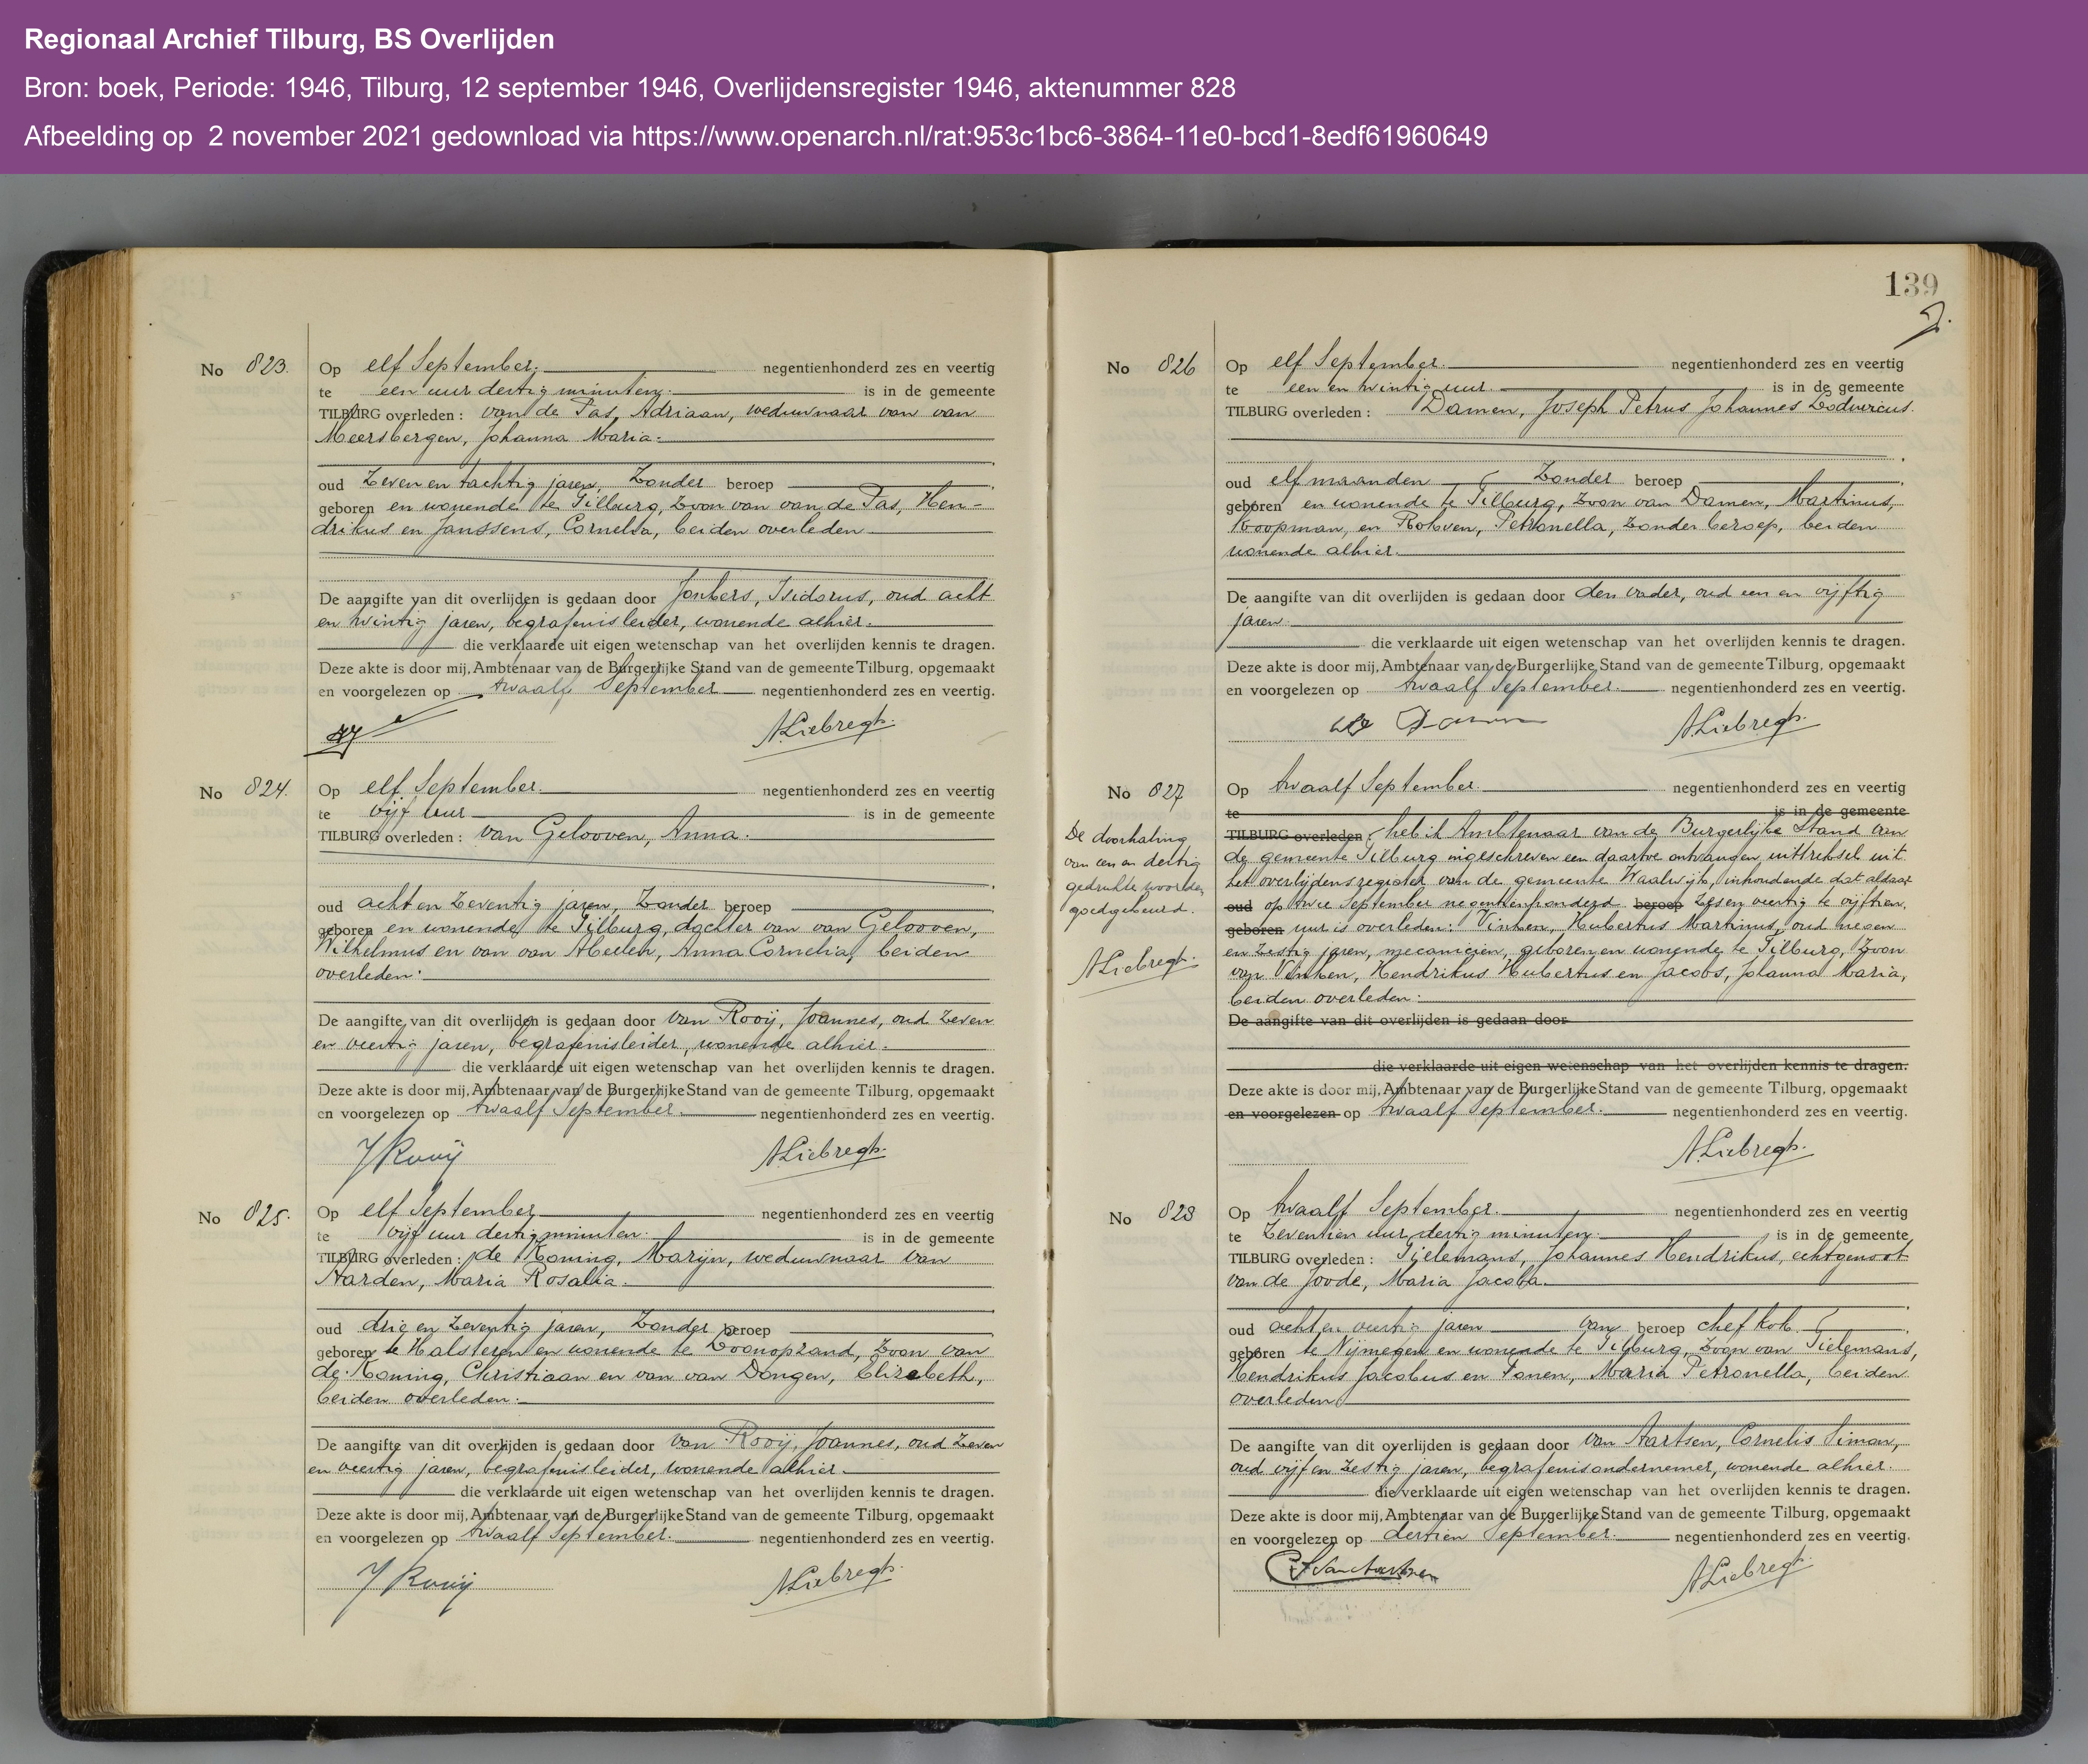 Regionaal Archief Tilburg, BS Overlijden
Bron: boek, Periode: 1946, Tilburg, 12 september 1946, Overlijdensregister 1946, aktenummer 828
Afbeelding op 2 november 2021 gedownload via https://www.openarch.nl/rat:953c1bc6-3864-11e0-bcd1-8edf61960649
No 823.
Op elf September. negentienhonderd zes en veertig
te een uur dertig minuten. is in de gemeente
TILBURG overleden: van de Pas, Adriaan, weduwnaar van van
Meersbergen, Johanna Maria.
oud zeven en tachtig jaren, zonder beroep
geboren en wonende te Tilburg, zoon van van de Pas, Hen-
drikus en Janssens, Cornelia, beiden overleden
De aangifte van dit overlijden is gedaan door Jonkers, Isidorus, oud acht
en twintig jaren, begrafenisleider, wonende alhier.
die verklaarde uit eigen wetenschap van het overlijden kennis te dragen.
Deze akte is door mij, Ambtenaar van de Burgerlijke Stand van de gemeente Tilburg, opgemaakt
en voorgelezen op twaalf September negentienhonderd zes en veertig.
ALiebregts.
No 824.
Op elf September. negentienhonderd zes en veertig
te vijf uur is in de gemeente
TILBURG overleden: van Gelooven, Anna.
oud acht en zeventig jaren, zonder beroep
geboren en wonende te Tilburg, dochter van van Gelooven,
Wilhelmus en van van Abeelen, Anna Cornelia, beiden
overleden.
De aangifte van dit overlijden is gedaan door van Rooij, Joannes, oud zeven
en veertig jaren, begrafenisleider, wonende alhier.
die verklaarde uit eigen wetenschap van het overlijden kennis te dragen.
Deze akte is door mij, Ambtenaar van de Burgerlijke Stand van de gemeente Tilburg, opgemaakt
en voorgelezen op twaalf September. negentienhonderd zes en veertig.
J Rooij ALiebregts.
No 825.
Op elf September negentienhonderd zes en veertig
te vijf uur dertig minuten. is in de gemeente
TILBURG overleden: de Koning, Marijn, weduwnaar van
Aarden, Maria Rosalia.
oud drie en zeventig jaren, zonder beroep
geboren te Halsteren en wonende te Loonopzand, zoon van
de Koning, Christiaan en van van Dongen, Elizabeth,
beiden overleden.
De aangifte van dit overlijden is gedaan door van Rooij, Joannes, oud zeven
en veertig jaren, begrafenisleider, wonende alhier.
die verklaarde uit eigen wetenschap van het overlijden kennis te dragen.
Deze akte is door mij, Ambtenaar van de Burgerlijke Stand van de gemeente Tilburg, opgemaakt
en voorgelezen op twaalf September. negentienhonderd zes en veertig.
J Rooij ALiebregts.
139
No 826
Op elf September. negentienhonderd zes en veertig
te een en twintig uur. is in de gemeente
TILBURG overleden: Damen, Joseph Petrus Johannes Lodovicus.
oud elf maanden zonder beroep
geboren en wonende te Tilburg, zoon van Damen, Martinus,
koopman, en Robven, Petronella, zonder beroep, beiden
wonende alhier.
De aangifte van dit overlijden is gedaan door den vader, oud een en vijftig
jaren.
die verklaarde uit eigen wetenschap van het overlijden kennis te dragen.
Deze akte is door mij, Ambtenaar van de Burgerlijke Stand van de gemeente Tilburg, opgemaakt
en voorgelezen op twaalf September. negentienhonderd zes en veertig.
Damen ALiebregts.
No 827
De doorhaling
van een en dertig
gedrukte woorden
goedgekeurd.
ALiebregts.
Op twaalf September. negentienhonderd zes en veertig
te is in de gemeente
TILBURG overleden: heb ik Ambtenaar van de Burgerlijke Stand van
de gemeente Tilburg ingeschreven een daartoe ontvangen uittreksel uit
het overlijdensregister van de gemeente Waalwijk, inhoudende dat aldaar
oud op twee September negentienhonderd beroep zes en veertig te vijftien
geboren uur is overleden: Vinken, Hubertus Martinus, oud negen
en zestig jaren, mecanicien, geboren en wonende te Tilburg, zoon
van Vinken, Hendrikus Hubertus en Jacobs, Johanna Maria,
beiden overleden.
De aangifte van dit overlijden is gedaan door
die verklaarde uit eigen wetenschap van het overlijden kennis te dragen.
Deze akte is door mij, Ambtenaar van de Burgerlijke Stand van de gemeente Tilburg, opgemaakt
en voorgelezen op twaalf September. negentienhonderd zes en veertig.
ALiebregts.
No 828
Op twaalf September. negentienhonderd zes en veertig
te zeventien uur dertig minuten. is in de gemeente
TILBURG overleden: Tielemans, Johannes Hendrikus, echtgenoot
van de Joode, Maria Jacoba.
oud acht en veertig jaren van beroep chef kok.
geboren te Nijmegen en wonende te Tilburg, zoon van Tielemans,
Hendrikus Jacobus en Fonen, Maria Petronella, beiden
overleden
De aangifte van dit overlijden is gedaan door van Aartsen, Cornelis Simon,
oud vijf en zestig jaren, begrafenisondernemer, wonende alhier.
die verklaarde uit eigen wetenschap van het overlijden kennis te dragen.
Deze akte is door mij, Ambtenaar van de Burgerlijke Stand van de gemeente Tilburg, opgemaakt
en voorgelezen op dertien September. negentienhonderd zes en veertig.
CSvanAartsen ALiebregts.